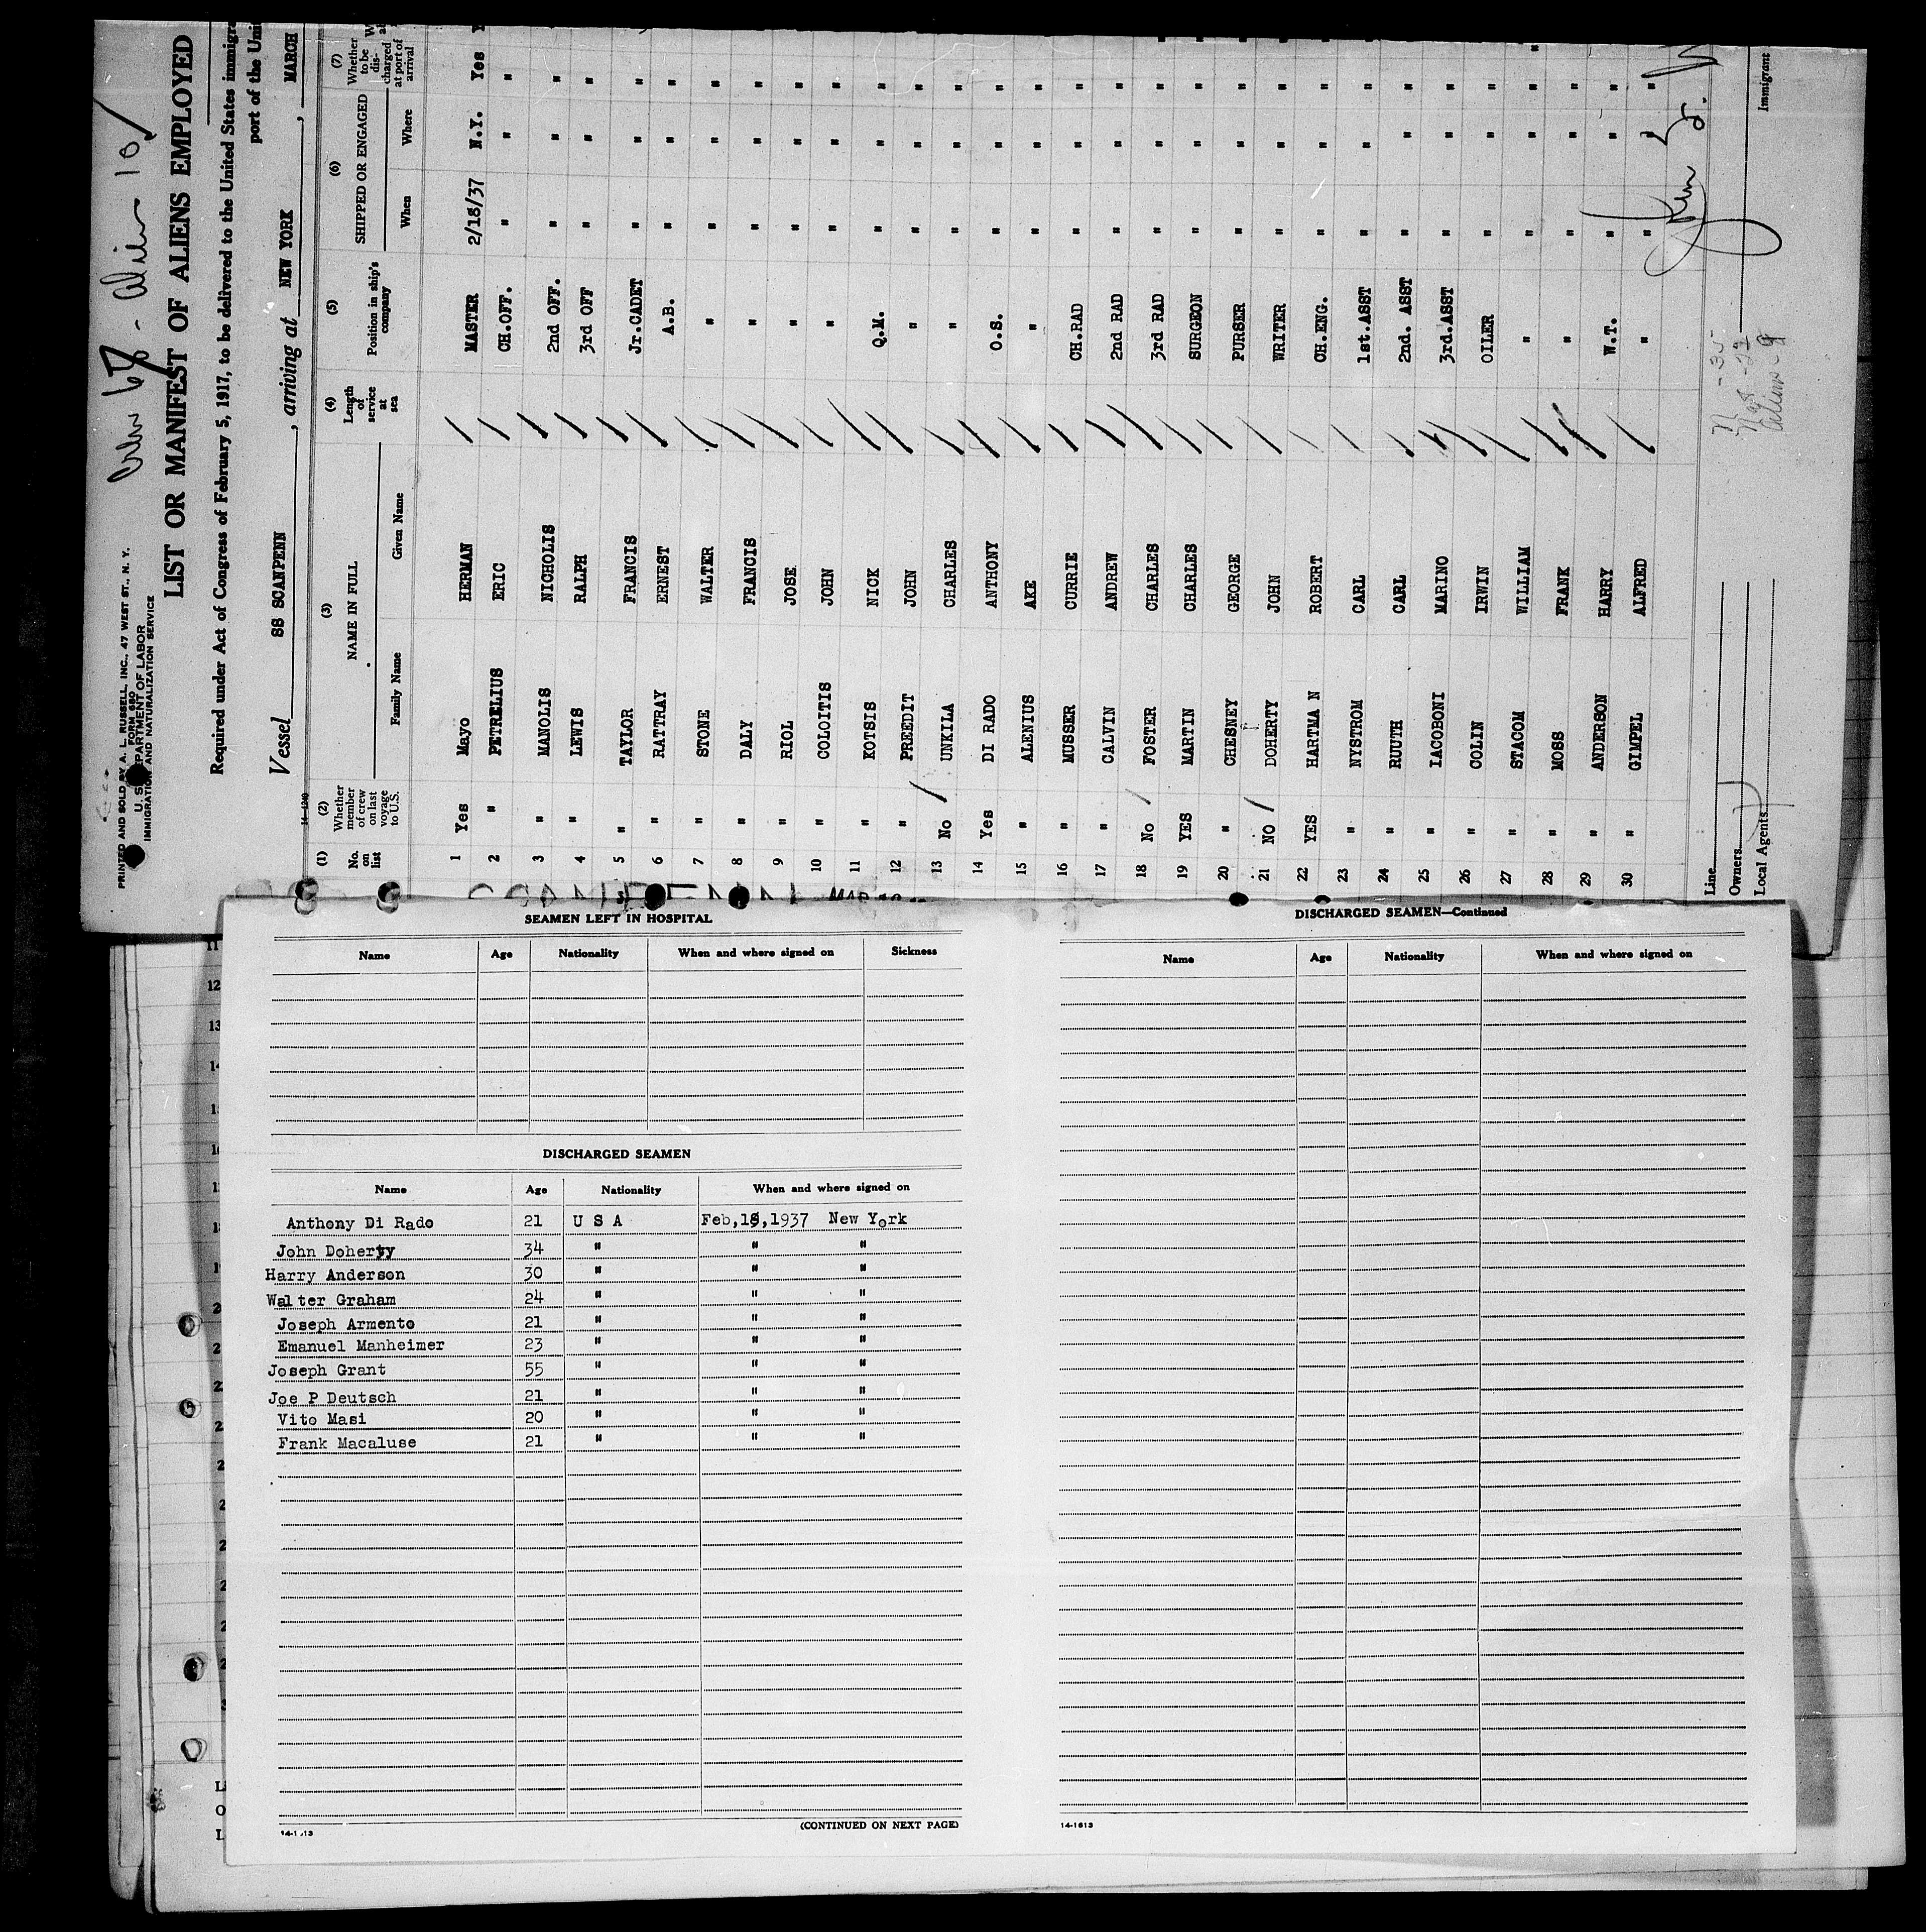 PRINTED AND SOLD BY A. L. RUSSELL, INC., 47 WEST ST., N. Y.
FORM 680
U. S. DEPARTMENT OF LABOR
IMMIGRATION AND NATURALIZATION SERVICE
LIST OR MANIFEST OF ALIENS EMPLOYED
Required under Act of Congress of February 5, 1917, to be delivered to the United States immigr
port of the Uni
Vessel SS SCANPENN, arriving at NEW YORK, MARCH
14-1240
(1) No. on list (2) Whether member of crew on last voyage to U.S. (3) NAME IN FULL Family Name Given Name (4) Length of service at sea (5) Position in ship's company (6) SHIPPED OR ENGAGED When Where (7) Whether to be discharged at port of arrival
1 Yes Mayo HERMAN MASTER 2/18/37 N.Y. Yes
2 " PETRELIUS ERIC CH.OFF. " " "
3 " MANOLIS NICHOLIS 2nd OFF. " " "
4 " LEWIS RALPH 3rd OFF " " "
5 " TAYLOR FRANCIS Jr.CADET " " "
6 " RATTRAY ERNEST A.B. " " "
7 " STONE WALTER " " " "
8 " DALY FRANCIS " " " "
9 " RIOL JOSE " " " "
10 " COLOITIS JOHN " " " "
11 " KOTSIS NICK Q.M. " " "
12 " PREEDIT JOHN " " " "
13 No UNKILA CHARLES " " " "
14 Yes DI RADO ANTHONY O.S. " " "
15 " ALENIUS AKE " " " "
16 " MUSSER CURRIE CH.RAD " " "
17 " CALVIN ANDREW 2nd RAD " " "
18 No FOSTER CHARLES 3rd RAD " " "
19 YES MARTIN CHARLES SURGEON " " "
20 " CHESNEY GEORGE PURSER " " "
21 NO DOHERTY JOHN WRITER " " "
22 YES HARTMA N ROBERT CH.ENG. " " "
23 " NYSTROM CARL 1st.ASST " " "
24 " RUUTH CARL 2nd. ASST " " "
25 " IACOBONI MARINO 3rd.ASST " " "
26 " COLIN IRWIN OILER " " "
27 " STACOM WILLIAM " " " "
28 " MOSS FRANK " " " "
29 " ANDERSON HARRY W.T. " " "
30 " GIMPEL ALFRED " " " "
Line
Owners
Local Agents
Immigrant
SEAMEN LEFT IN HOSPITAL
Name Age Nationality When and where signed on Sickness
DISCHARGED SEAMEN
Name Age Nationality When and where signed on
Anthony Di Rado 21 U S A Feb,18,1937 New York
John Doherty 34 " " "
Harry Anderson 30 " " "
Walter Graham 24 " " "
Joseph Armento 21 " " "
Emanuel Manheimer 23 " " "
Joseph Grant 55 " " "
Joe P Deutsch 21 " " "
Vito Masi 20 " " "
Frank Macaluse 21 " " "
(CONTINUED ON NEXT PAGE)
DISCHARGED SEAMEN—Continued
Name Age Nationality When and where signed on
14-1613